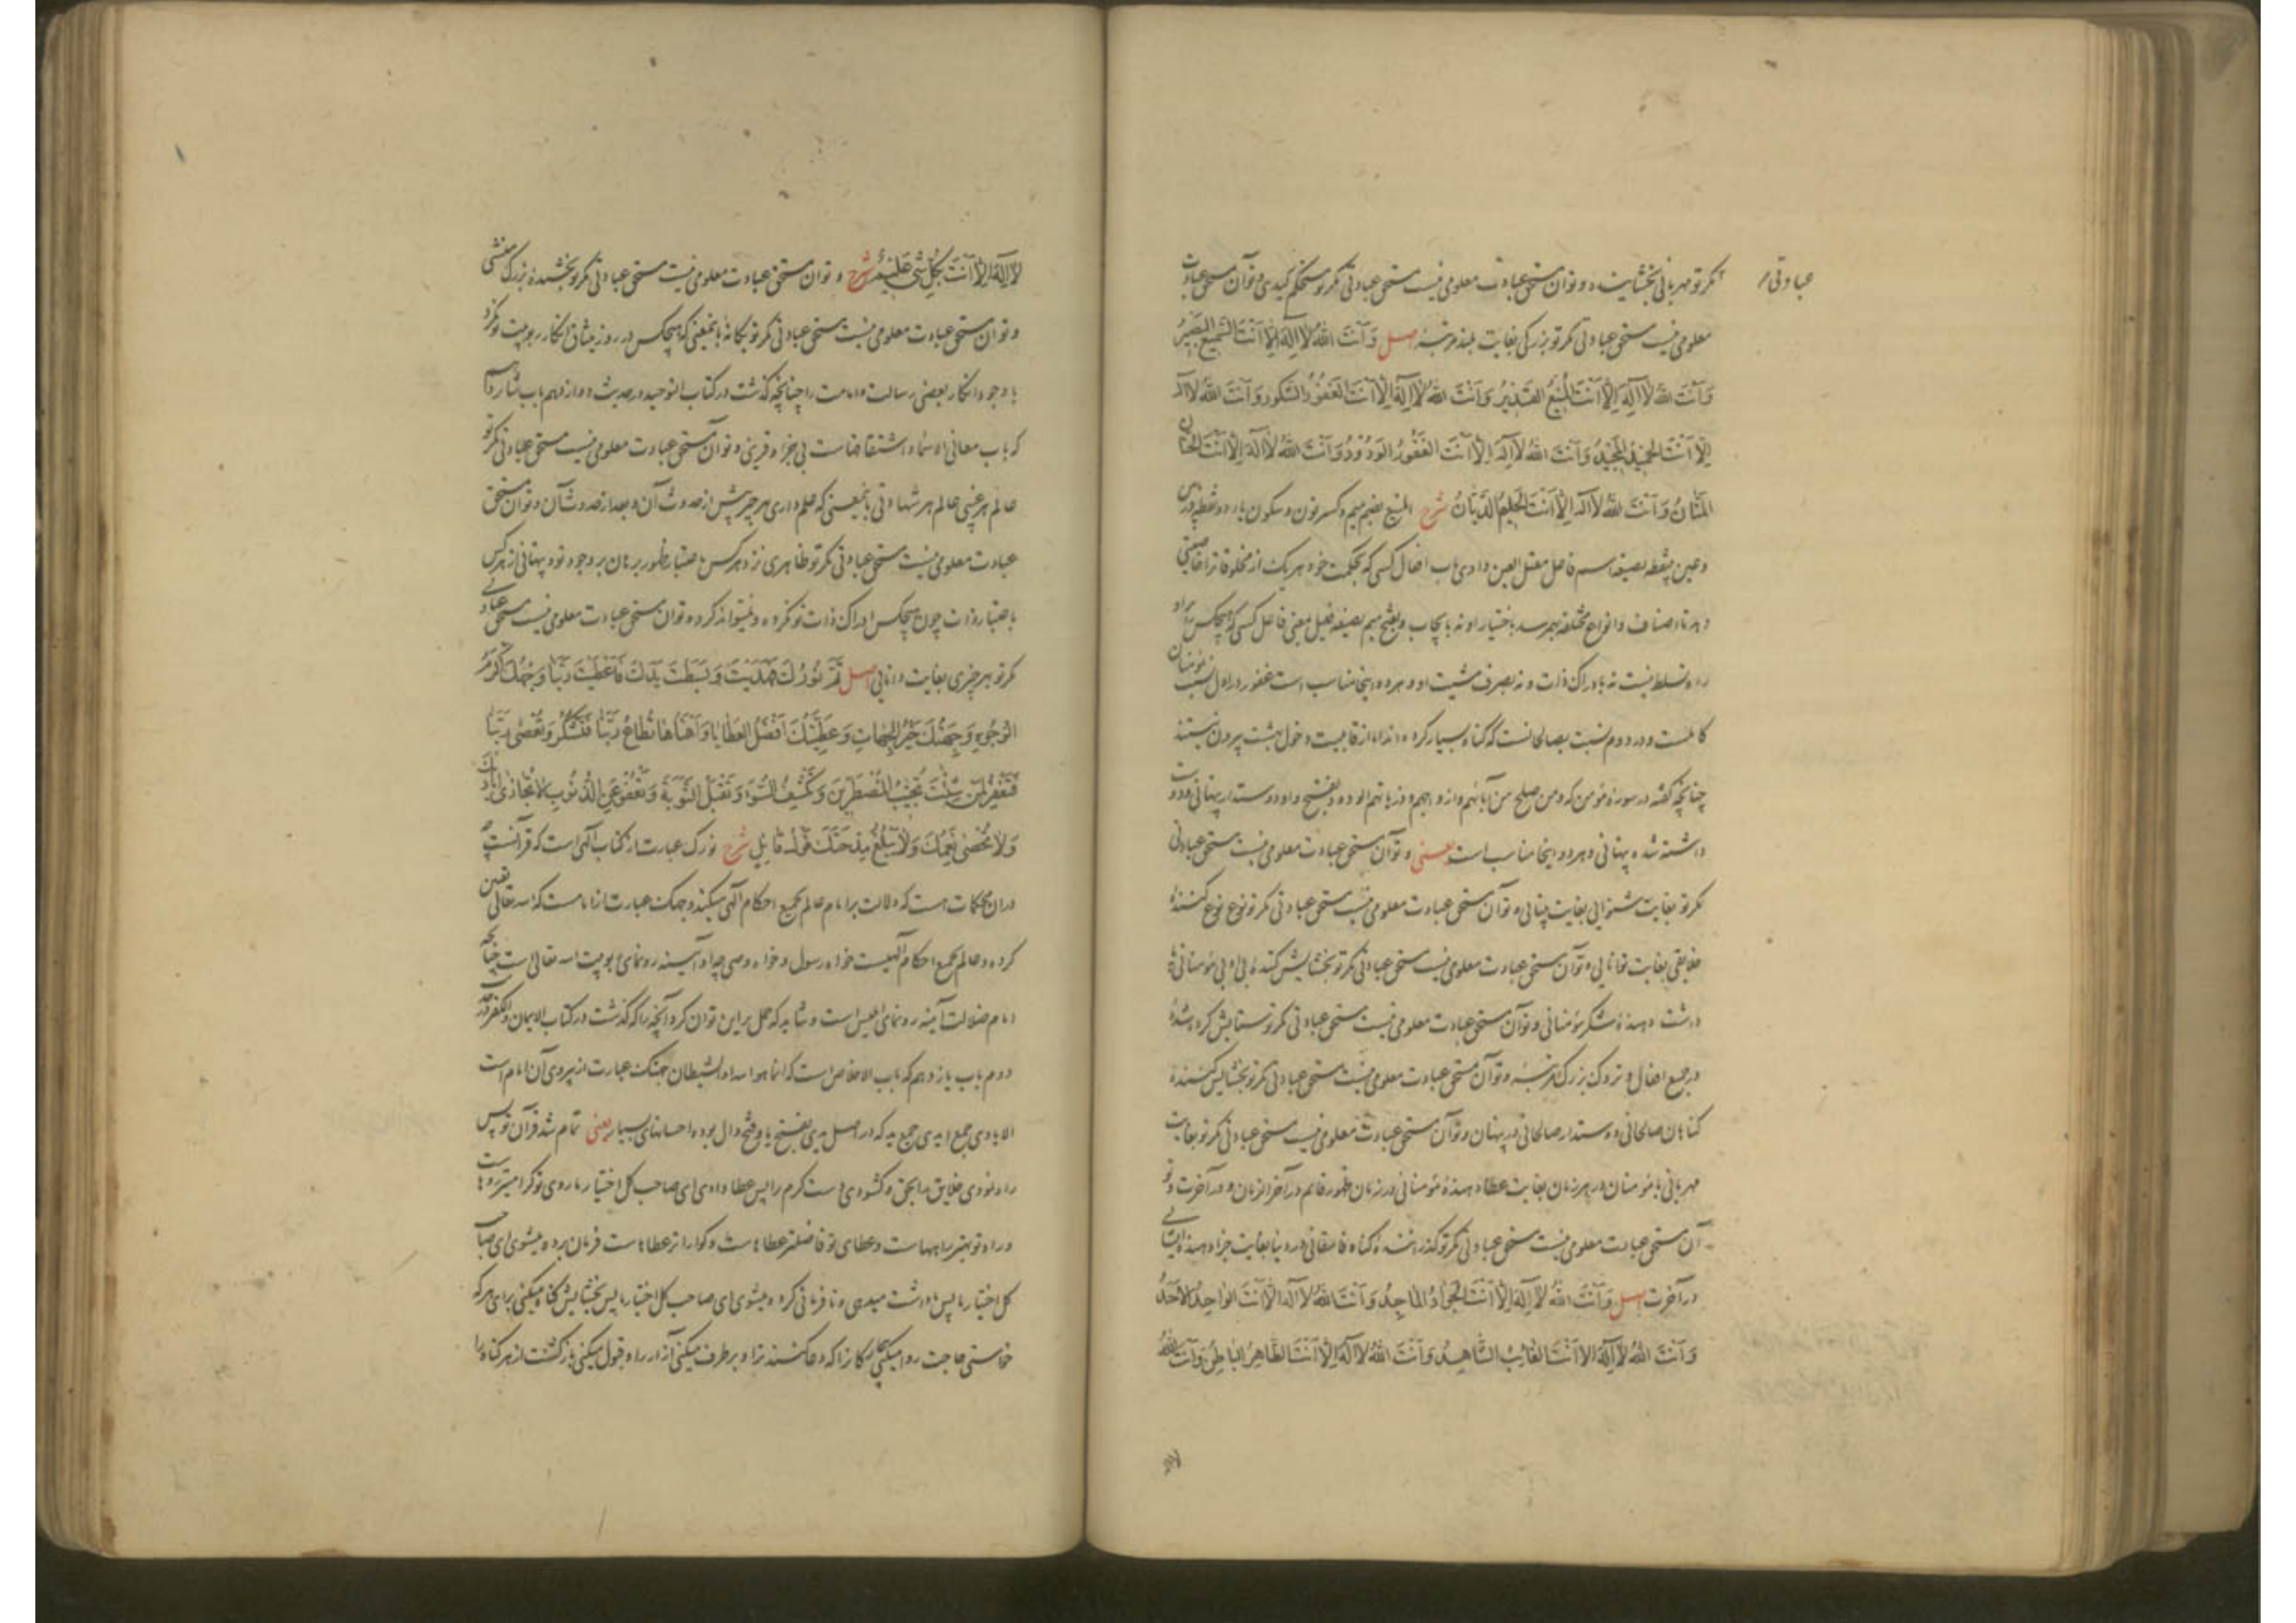 مگر تو مهربانی بخشاینده و توآن مستحق عبادت معلومی نیست مستحق عبادتی مگر تو مستحکم کیدی و توآن مستحق عبادت
عبادتی
معلومی نیست مستحق عبادتی مگر تو بزرگی بغایت بلند مرتبه اصل وَأَنْتَ اللهُ لَا اِلٰهَ اِلَّا اَنْتَ السَّمِيعُ الْبَصِيرُ
وَأَنْتَ اللهُ لَا اِلٰهَ اِلَّا اَنْتَ الْمُنِيعُ الْقَدِيرُ وَأَنْتَ اللهُ لَا اِلٰهَ اِلَّا اَنْتَ الْغَفُورُ الشَّكُورُ وَأَنْتَ اللهُ لَا اِلٰهَ
اِلَّا اَنْتَ الْحَمِيدُ الْمَجِيدُ وَأَنْتَ اللهُ لَا اِلٰهَ اِلَّا اَنْتَ الْغَفُورُ الْوَدُودُ وَأَنْتَ اللهُ لَا اِلٰهَ اِلَّا اَنْتَ الْحَنَّانُ
الْمَنَّانُ وَأَنْتَ اللهُ لَا اِلٰهَ اِلَّا اَنْتَ الْحَلِيمُ الدَّيَّانُ شرح المنیع بضم میم و کسر نون و سکون یاء دو نقطه در
و عین بی‌نقطه بصیغه اسم فاعل معتل العین وادی باب افعال کسی که بحکمت خود هر یک از مخلوقات را
دهد تا اصناف و انواع مختلفه بهم رسد باختیار او نه بایجاب و بفتح میم بصیغه فعیل بمعنی فاعل کسی که هیچکس
راه تسلط نیست نه بادراک ذات و نه بصرف مشیت او و هر دو اینجا مناسب است غفور در اول نسبت مؤمنان
کاملست و در دوم نسبت بصالحانست که گناه بسیار کرده‌اند اما از قابلیت دخول بهشت بیرون نیستند
چنانچه گفته در سوره مؤمن که ومن صلح من آبائهم وازواجهم وذریاتهم الودود بفتح واو دوستدار پنهانی و دوست
داشته شده پنهانی و هر دو اینجا مناسب است یعنی و توآن مستحق عبادت معلومی نیست مستحق عبادتی
مگر تو بغایت شنوایی بغایت بینایی و توآن مستحق عبادت معلومی نیست مستحق عبادتی مگر تو نوع نوع کننده
خلایقی بغایت توانایی و توآن مستحق عبادت معلومی نیست مستحق عبادتی مگر تو بخشایش کننده
دهنده شکر مؤمنانی و توآن مستحق عبادت معلومی نیست مستحق عبادتی مگر تو ستایش کرده شده
در جمیع افعال و تروک بزرگ مرتبه و توآن مستحق عبادت معلومی نیست مستحق عبادتی مگر تو بخشایش کننده
گناهان صالحانی دوستدار صالحانی در پنهان و توآن مستحق عبادت معلومی نیست مستحق عبادتی مگر تو بغایت
مهربانی با مؤمنان در هر زمان بغایت عطا دهنده مؤمنانی در زمان ظهور قائم در آخر الزمان و در آخرت و تو
آن مستحق عبادت معلومی نیست مستحق عبادتی مگر تو گذراننده گناه فاسقانی در دنیا بغایت جزا دهنده ایشانی
در آخرت اصل وَأَنْتَ اللهُ لَا اِلٰهَ اِلَّا اَنْتَ الْجَوَادُ الْمَاجِدُ وَأَنْتَ اللهُ لَا اِلٰهَ اِلَّا اَنْتَ الْوَاحِدُ الْأَحَدُ
وَأَنْتَ اللهُ لَا اِلٰهَ اِلَّا اَنْتَ الْغَائِبُ الشَّاهِدُ وَأَنْتَ اللهُ لَا اِلٰهَ اِلَّا اَنْتَ الظَّاهِرُ الْبَاطِنُ وَأَنْتَ اللهُ
لا اله
لَا اِلٰهَ اِلَّا اَنْتَ بِكُلِّ شَيْءٍ عَلِيمٌ شرح و توآن مستحق عبادت معلومی نیست مستحق عبادتی مگر تو بخشنده بزرگ منشی
و توآن مستحق عبادت معلومی نیست مستحق عبادتی مگر تو یگانه باینمعنی که هیچکس در روز میثاق انکار ربوبیت تو نکرد
باوجود انکار بعضی رسالت و امامت را چنانچه گذشت در کتاب التوحید در حدیث دوازدهم باب شانزدهم
که باب معانی الاسماء واشتقاقهاست بی جزا و قرینی و توآن مستحق عبادت معلومی نیست مستحق عبادتی مگر تو
عالم هر غیبی عالم هر شهادتی باینمعنی که علم داری هر چیز پیش از حدوث آن و بعد از حدوث آن و توآن مستحق
عبادت معلومی نیست مستحق عبادتی مگر تو ظاهری نزد هر کس باعتبار ظهور برهان بر وجود تو و پنهانی از هر کس
باعتبار ذات چون هیچکس ادراک ذات تو نکرده و نمیتواند کرد و توآن مستحق عبادت معلومی نیست مستحق عبادتی
مگر تو بهر چیزی بغایت دانایی اصل تَمَّ نُورُكَ فَهَدَيْتَ وَبَسَطْتَ يَدَكَ فَأَعْطَيْتَ رَبَّنَا وَجْهُكَ أَكْرَمُ
الْوُجُوهِ وَجِهَتُكَ خَيْرُ الْجِهَاتِ وَعَطِيَّتُكَ أَفْضَلُ الْعَطَايَا وَأَهْنَاهَا تُطَاعُ رَبَّنَا فَتَشْكُرُ وَتُعْصَى رَبَّنَا
فَتَغْفِرُ لِمَنْ شِئْتَ تُجِيبُ الْمُضْطَرِّينَ وَتَكْشِفُ السُّوءَ وَتَقْبَلُ التَّوْبَةَ وَتَعْفُو عَنِ الذُّنُوبِ لَا تُجَازَى أَيَادِيكَ
وَلَا تُحْصَى نِعَمُكَ وَلَا يَبْلُغُ مِدْحَتَكَ قَوْلُ قَائِلٍ شرح نورک عبارت از کتاب الهی است که قرآنست
در آن محکمات هست که دلالت بر امام عالم بجمیع احکام الهی میکند وجهک عبارت از امامست که الله تعالی تعیین
کرده و عالم بجمیع احکام الهیست خواه رسول و خواه وصی چه او آیینه رونمای ربوبیت الله تعالی است چنانچه
امام ضلالت آیینه رونمای ابلیس است و شاید که حمل بر این توان کرد آنچه را که گذشت در کتاب الایمان والکفر در حدیث
دوم باب یازدهم که باب الاخلاص است که انما هو الله والشیطان جهتک عبارت از پیروی آن امام است
الایادی جمع ایدی جمع ید که در اصل یدی بفتح یا و فتح دال بوده احسانهای بسیار یعنی تمام شد قرآن تو پس
راه نمودی خلایق را بحق و گشودی دست کرم را پس عطا دادی ای صاحب کل اختیار ما روی تو گرامیتر روهاست
و راه تو بهتر راههاست و عطای تو فاضلتر عطاهاست و گواراتر عطاهاست فرمان برده میشوی ای صاحب
کل اختیار ما پس پاداشت میدهی و نافرمانی کرده میشوی ای صاحب کل اختیار ما پس بخشایش گناه میکنی برای هر که
خواستی حاجت روا میکنی بیچارگان را که دعا کنند ترا و برطرف میکنی آزار را و قبول میکنی بازگشت از هر گناه را